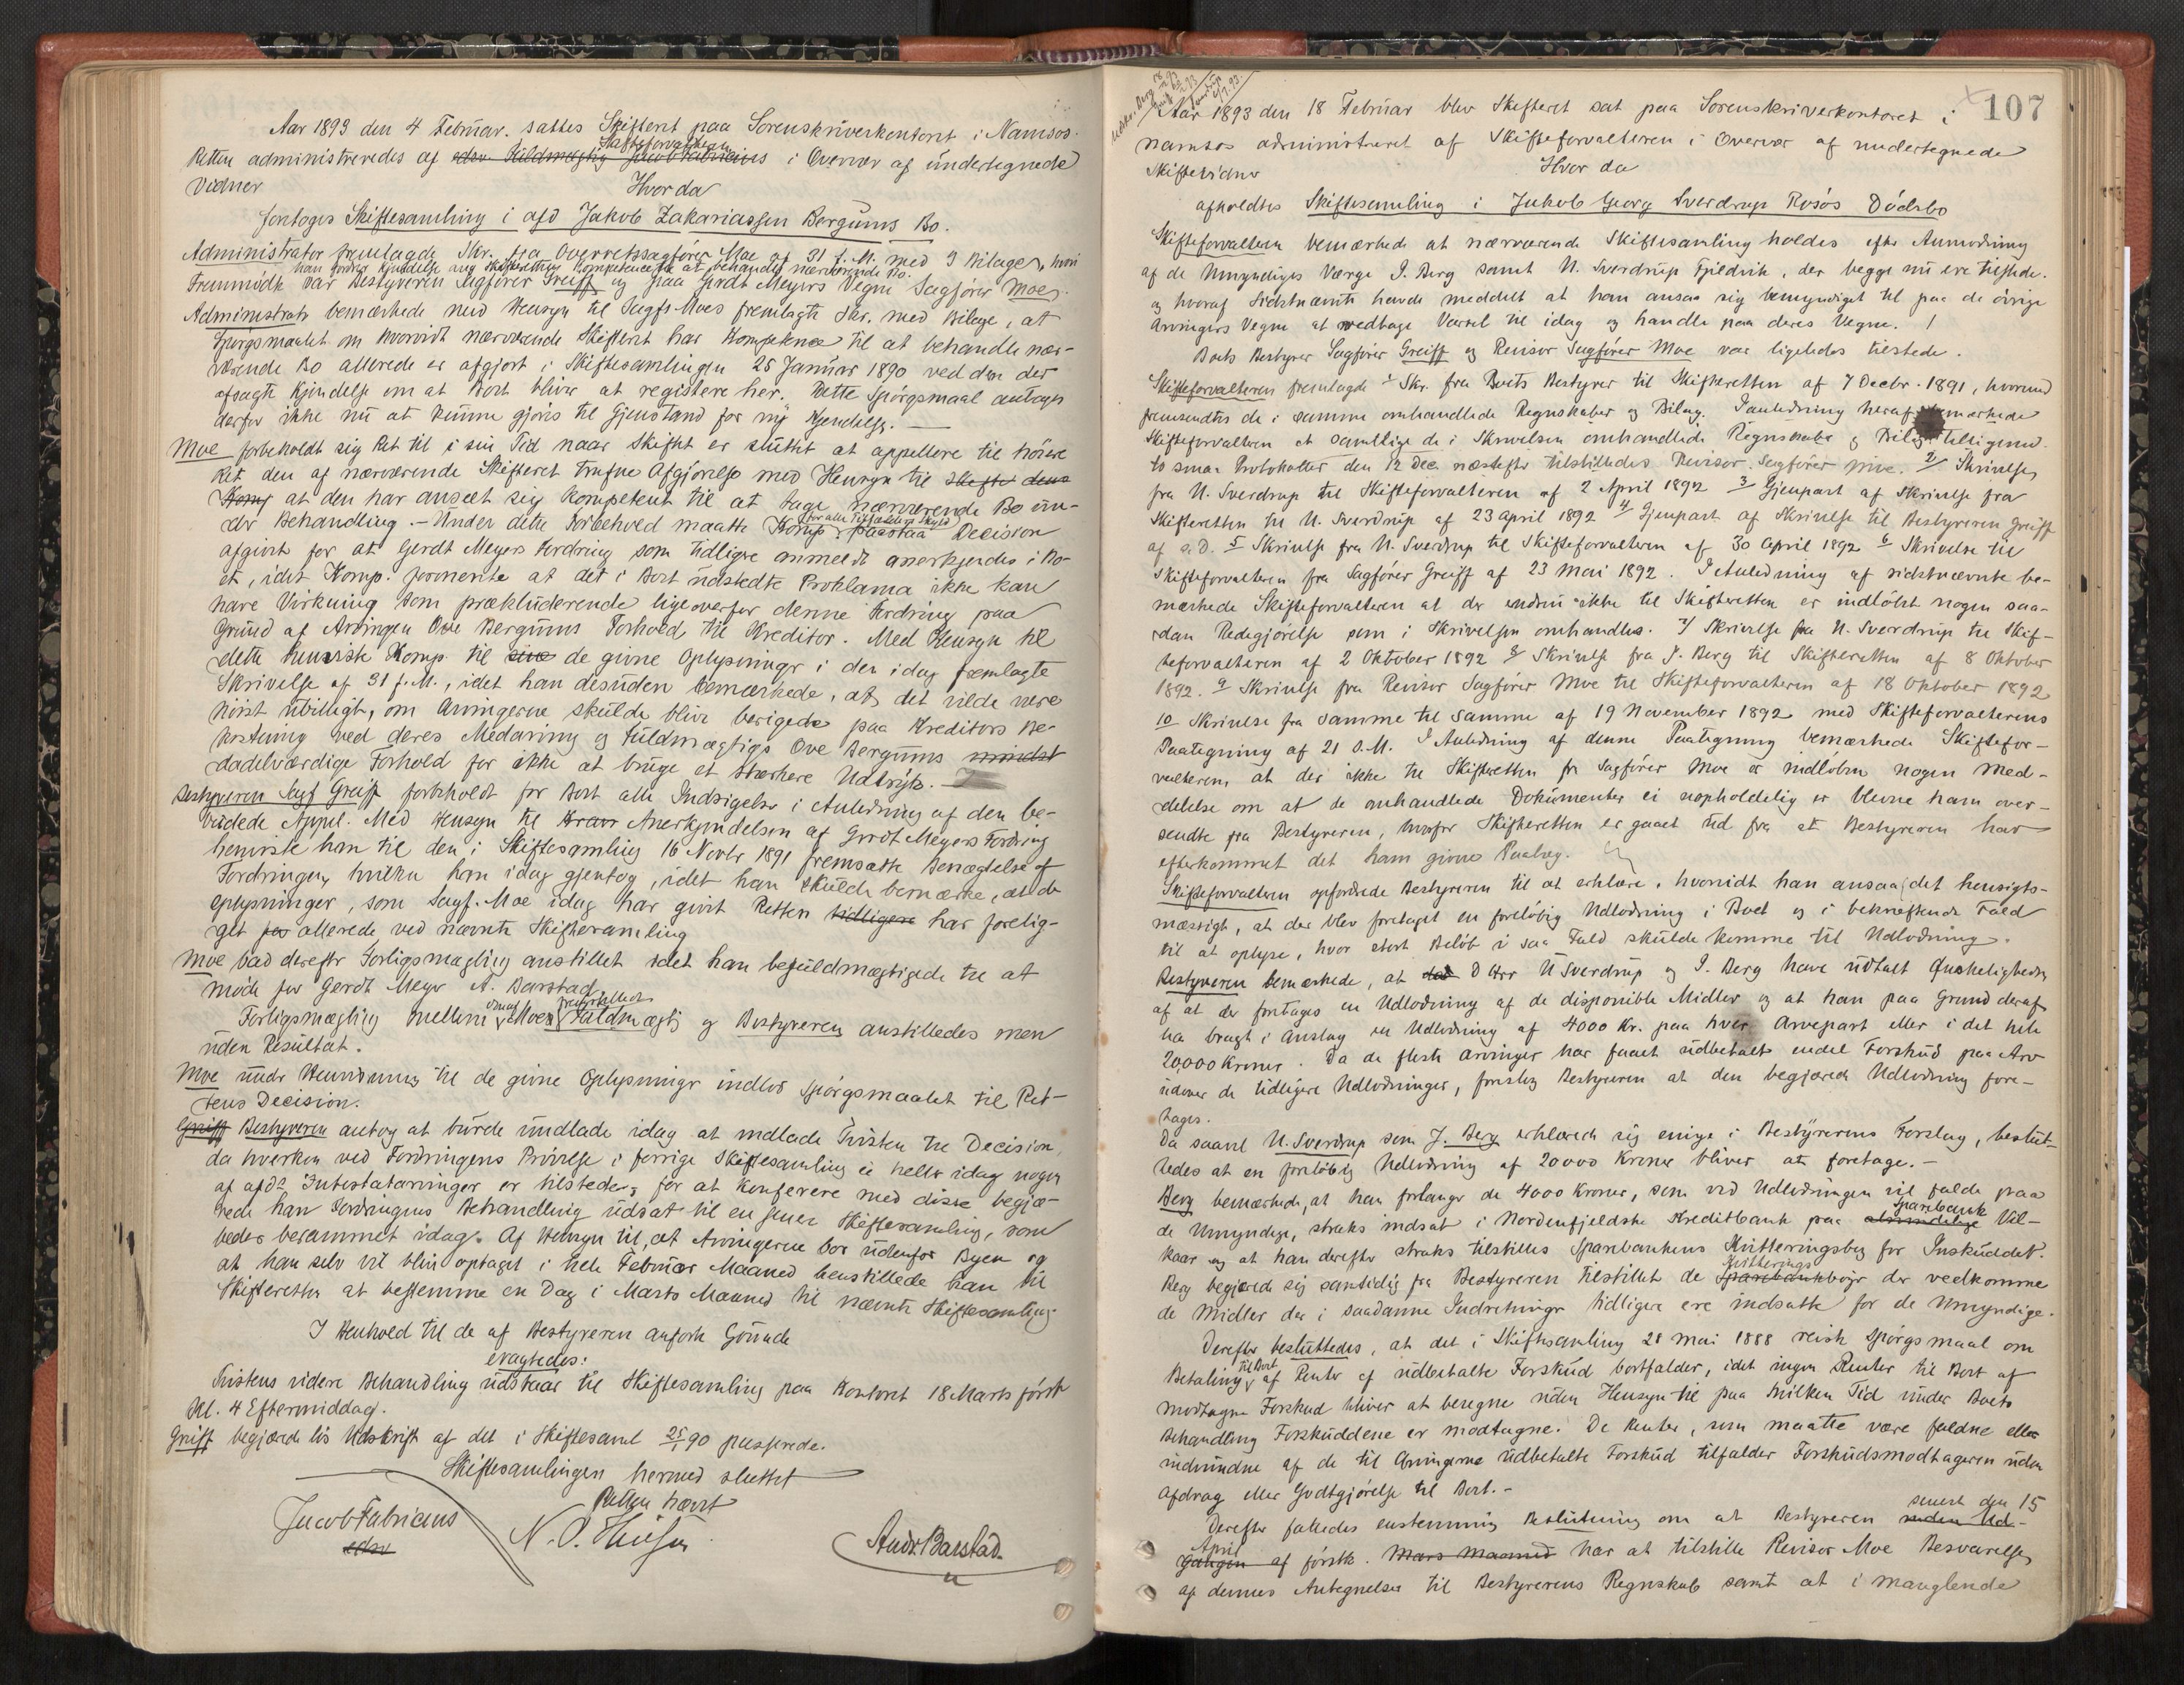 Aar 1893 den 4 Februar. sattes Skifteret paa Sorenskriverkontoret i Namsos.
Skifteforvalteren
Retten administreredes af edsv. Fuldmægtig Jacob Fabricius i Overvær af undertegnede
Vidner
Hvor da
foretoges Skiftesamling i afd Jakob Zakariassen Bergums Bo.
Administrator fremlagde Skr. fra Overretssagfører Moe af 31 f. M. med 3 Bilage, hvori
han fordrer Kjendelse ang Skifterettens Kompetence til at behandle nærværende Bo.
Fremmødt var Bestyreren Sagfører Greiff og paa Gerdt Meyers Vegne Sagfører Moe.
Administrator bemærkede med Hensyn til Sagf. Moes fremlagte Skr. med Bilage, at
Spørgsmaalet om hvorvidt nærværende Skifteret har Kompetence til at behandle nær-
værende Bo allerede er afgjort i Skiftesamlingen 25 Januar 1890 ved den der
afsagte Kjendelse om at Boet bliver at registere her. Dette Spørgsmaal antages
derfor ikke nu at kunne gjøres til Gjenstand for ny Kjendelse. —
Moe forbeholdt sig Ret til i sin Tid naar Skiftet er sluttet at appellere til høiere
Ret den af nærværende Skifteret trufne Afgjørelse med Hensyn til Skifte dens
Komp at den har anseet sig kompetent til at tage nærværende Bo un-
der Behandling. — Under dette Forbehold maatte Komp. for alle Tilfældes Skyld paastaa Decision
afgivet for at Gerdt Meyers Fordring som tidligere anmeldt anerkjendes i Bo-
et, idet Komp. formente at det i Boet udstedte Proklama ikke kan
have Virkning som prækluderende ligeoverfor denne Fordring paa
Grund af Arvingen Ove Bergums Forhold til Kreditor. Med Hensyn til
dette henviste Komp. til sine de givne Oplysninger i den idag fremlagte
Skrivelse af 31 f. M., idet han desuden bemærkede, at det vilde være
høist ubilligt, om Arvingerne skulde blive berigede paa Kreditors Be-
kostning ved deres Medarving og Fuldmægtigs Ove Bergums mindst
dadelværdige Forhold for ikke at bruge et stærkere Udtryk. —
Bestyreren Sagf Greiff forbeholdt for Boet alle Indsigelser i Anledning af den be-
budede Appel. Med Hensyn til Krav Anerkjendelsen af Gerdt Meyers Fordring
henviste han til den i Skiftesamling 16 Novbr 1891 fremsatte Benægtelse af
Fordringen, hvilken han idag gjentog, idet han skulde bemærke, at de
Oplysninger, som Sagf. Moe idag har givet Retten tidligere har forelig-
get for allerede ved nævnte Skiftesamling
Moe bad derefter Forligsmægling anstillet idet han befuldmægtigede til at
møde for Gerdt Meyer A. Barstad
Forligsmægling mellem Moes Fuldmægtig og Bestyreren anstilledes men
uden Resultat.
Moe under Henvisning til de givne Oplysninger indlod Spørgsmaalet til Ret-
tens Decision.
Greiff Bestyreren antog at burde undlade idag at indlade Tvisten til Decision,
da hverken ved Fordringens Prøvelse i forrige Skiftesamling ei heller idag nogen
af afd's Intestatarvinger er tilstede, for at konferere med disse begjæ-
rede han Fordringens Behandling udsat til en senere Skiftesamling, som
bedes berammet idag. Af Hensyn til, at Arvingerne bor udenfor Byen og
at han selv vil blive optaget i hele Februar Maaned henstillede han til
Skifteretten at bestemme en Dag i Marts Maaned til nævnte Skiftesamling
I Henhold til de af Bestyreren anførte Grunde
eragtedes:
Tvistens videre Behandling udstaar til Skiftesamling paa Kontoret 18 Marts først
Kl. 4 Eftermiddag.
Greiff begjærede lös Udskrift af det i Skiftesaml 25/1 90 passerede.
Skiftesamlingen hermed sluttet
Retten hævet
Jacob Fabricius
edsv
Andr. Barstad.
107
Aar 1893 den 18 Februar blev Skifteret sat paa Sorenskriverkontoret i
Namsos administreret af Skifteforvalteren i Overvær af undertegnede
Skiftevidner
Hvor da
afholdtes Skiftesamling i Jakob Georg Sverdrup Rosøs Dödsbo
Skifteforvalteren bemærkede at nærværende Skiftesamling holdes efter Anmodning
af de Umyndiges Værge J. Berg samt U. Sverdrup Fjeldvik, der begge nu ere tilstede.
og hvoraf Sidstnævnte havde meddelt at han ansaa sig bemyndiget til paa de øvrige
Arvingers Vegne at vedtage Varsel til idag og handle paa deres Vegne. /
Boets Bestyrer Sagfører Greiff og Revisor Sagfører Moe var ligeledes tilstede.
Skifteforvalteren fremlagde 1 Skr. fra Boets Bestyrer til Skifteretten af 7 Decbr. 1891, hvorved
fremsendtes de i samme omhandlede Regnskaber og Bilag. I Anledning heraf bemærkede
Skifteforvalteren at samtlige de i Skrivelsen omhandlede Regnskaber og Bilag tilligemed
to smaa Protokoller den 12 Dec. næstefter tilstilledes Revisor Sagfører Moe. 2/ Skrivelse
fra U. Sverdrup til Skifteforvalteren af 2 April 1892 3 Gjenpart af Skrivelse fra
Skifteretten til U. Sverdrup af 23 April 1892 4/ Gjenpart af Skrivelse til Bestyreren Greiff
af s. D. 5 Skrivelse fra U. Sverdrup til Skifteforvalteren af 30 April 1892 6 Skrivelse til
Skifteforvalteren fra Sagfører Greiff af 23 Mai 1892. I Anledning af sidstnævnte be-
mærkede Skifteforvalteren at der endnu ikke til Skifteretten er indløbet nogen saa-
dan Redegjörelse som i Skrivelsen omhandles. 7/ Skrivelse fra U. Sverdrup til Skif-
teforvalteren af 2 Oktober 1892 8/ Skrivelse fra J. Berg til Skifteretten af 8 Oktober
1892. 9 Skrivelse fra Revisor Sagfører Moe til Skifteforvalteren af 18 Oktober 1892
10 Skrivelse fra samme til samme af 19 November 1892 med Skifteforvalterens
Paategning af 21 s. M. I Anledning af denne Paategning bemærkede Skiftefor-
valteren, at der ikke til Skifteretten fra Sagfører Moe er indløben nogen Med-
delelse om at de omhandlede Dokumenter ei uopholdelig er blevne ham over-
sendte fra Bestyreren, hvorfor Skifteretten er gaaet ud fra at Bestyreren har
efterkommet det ham givne Paalæg.
Skifteforvalteren opfordrede Bestyreren til at erklære, hvorvidt han ansaa det hensigts-
mæssigt, at der blev foretaget en foreløbig Udlodning i Boet og i bekræftende Fald
til at oplyse, hvor stort Beløb i saa Fald skulde komme til Udlodning.
Bestyreren bemærkede, at det D Hrr U Sverdrup og J. Berg have udtalt Ønskeligheden
af at der foretages en Udlodning af de disponible Midler og at han paa Grund deraf
har bragt i Anslag en Udlodning af 4000 Kr. paa hver Arvepart eller i det hele
20,000 Kroner. Da de fleste Arvinger har faaet udbetalt endel Forskud paa Arv
udover de tidligere Udlodninger, foreslog Bestyreren at den begjærede Udlodning fore-
tages.
Da saavel U. Sverdrup som J. Berg erklærede sig enige i Bestyrerens Forslag, beslut-
tedes at en foreløbig Udlodning af 20000 Kroner bliver at foretage. —
Berg bemærkede, at han forlanger de 4000 Kroner, som ved Udlodningen vil falde paa
de Umyndige, straks indsat i Nordenfjeldske Kreditbank paa almindelige Sparebank Vil-
kaar og at han derefter straks tilstilles Sparebankens Kvitteringsbog for Inskuddet.
Berg begjærede sig samtidig fra Bestyreren tilstillet de Sparebank Kvitterings bøger der vedkomme
de Midler der i saadanne Indretninger tidligere ere indsatte for de Umyndige.
Derefter besluttedes, at det i Skiftesamling 28 Mai 1888 reiste Spørgsmaal om
Betaling til Boet af Renter af udbetalte Forskud bortfalder, idet ingen Renter til Boet af
modtagne Forskud bliver at beregne uden Hensyn til paa hvilken Tid under Boets
Behandling Forskuddene er modtagne. De Renter, som maatte være faldne eller
indvundne af de til Arvingerne udbetalte Forskud tilfalder Forskudsmodtageren uden
Afdrag eller Godtgjörelse til Boet. —
Derefter fattedes enstemmig Beslutning om at Bestyreren inden Ud- senest den 15
gangen April af førstk. Mars Maaned har at tilstille Revisor Moe Besvarelse
af dennes Antegnelser til Bestyrerens Regnskab samt at i manglende